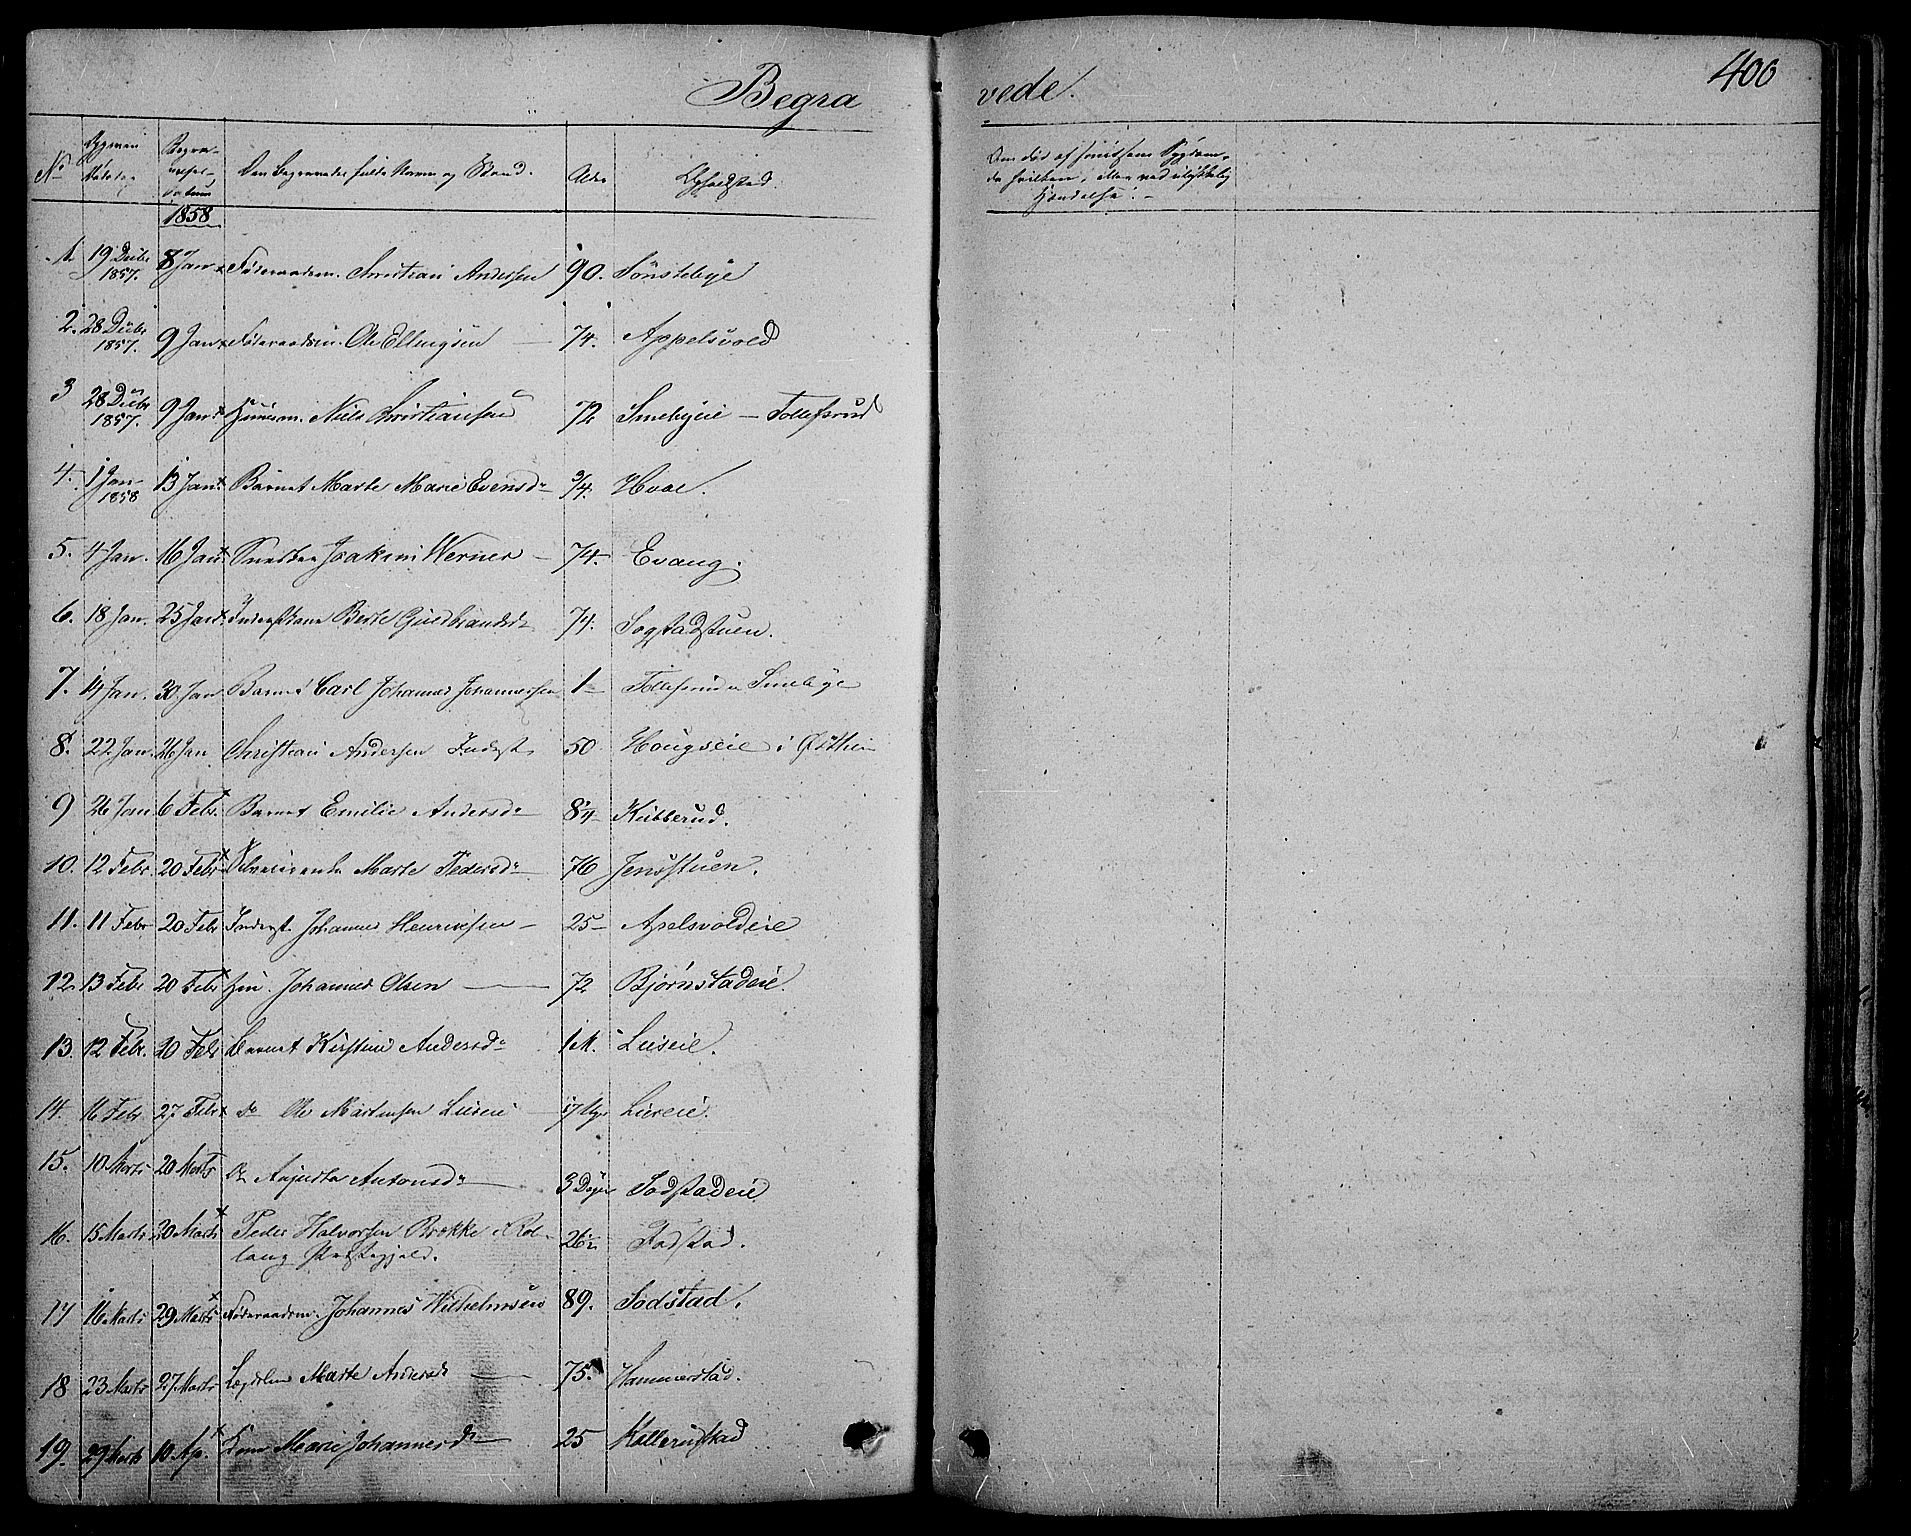 400
Begravede.
No Begra- Den Begravedes fulde Navn og Stand. Alder Opholdssted.
Om død af smitsom Sygdom,
da hvilken, eller ved ulykkelig
Hændelse.
1858
1. 19 Decbr 1857. 8 Jan Føderaadsm. Christian Andersen 90. Sönstebye
2. 28 Decbr 1857. 9 Jan Føderaadsm. Ole Ellingsen 74. Appelsvold
3 28 Decbr 1857. 9 Jan Huusm. Niels Christiansen 72 Smebyeie - Tollefsrud
4. 1 Jan 1858 13 Jan. Barnet Marte Marie Evensdr 3/4. Hval.
5. 4 Jan. 16 Jan Joakim Werner 74. Evang.
6. 18 Jan. 25 Jan Inderstkone Berte Guldbrandsdr 74. Sogstadstuen.
7. 14 Jan. 30 Jan Barnet Carl Johannes Johannessen 1 Tollefsrud Smebye
8. 22 Jan. 26 Jan Christian Andersen Inderst 50 Hougseie i Østhen
9 26 Jan 6 Febr. Barnet Emilie Andersdr 8 1/4 Kubberud.
10. 12 Febr. 20 Febr Marte Pedersdr 76 Jensstuen.
11. 11 Febr 20 Febr Inderst. Johannes Henriksen 25 Apelsvoldeie
12. 13 Febr 20 Febr Hm. Johannes Olsen 72 Bjørnstadeie.
13. 12 Febr. 20 Febr Barnet Kirstine Andersdr 1 M. Lieseie.
14. 16 Febr 27 Febr do Ole Martinsen Lieseie 17 Uger Lieseie.
15. 10 Marts 20 Marts do Augusta Antonsdr 3 Dage Sodstadeie
16. 15 Marts 20 Marts Peder Halvorsen Brokke i Rol-
laug Præstegjeld. 26 1/2 Sodstad.
17 16 Marts 29 Marts Føderaadsm. Johannes Wilhelmsen 89. Sodstad.
18 23 Marts 27 Marts Lægdslem Marte Andersdr 75. Hammerstad.
19. 29 Marts 10 Ap. Kone Marie Johannesdr 25 Kollerustad